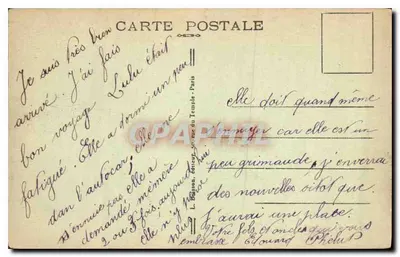 CARTE POSTALE
Je suis très bien
arrivé. J'ai fais
bon voyage Lulu était
fatiguée Elle a dormi un peu
dan l'autocar, elle ne
s'ennuie pas, elle a
demandé mémère
2 ou 3 fois, aujourd'hui
elle n'y pense
plus
elle doit quand même
s'ennuyer car elle est un
peu grimaude, j'enverrai
des nouvelles sitot que
j'aurai une place.
Votre fils
embrasse Edouard
Temple - Paris
CPAPHIL